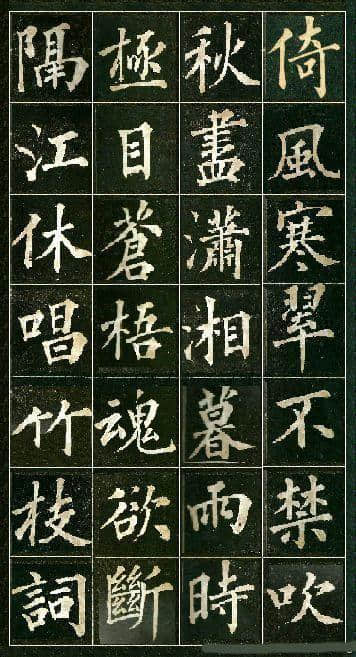 倚風寒翠不禁吹
秋盡瀟湘暮雨時
極目蒼梧魂欲斷
隔江休唱竹枝詞